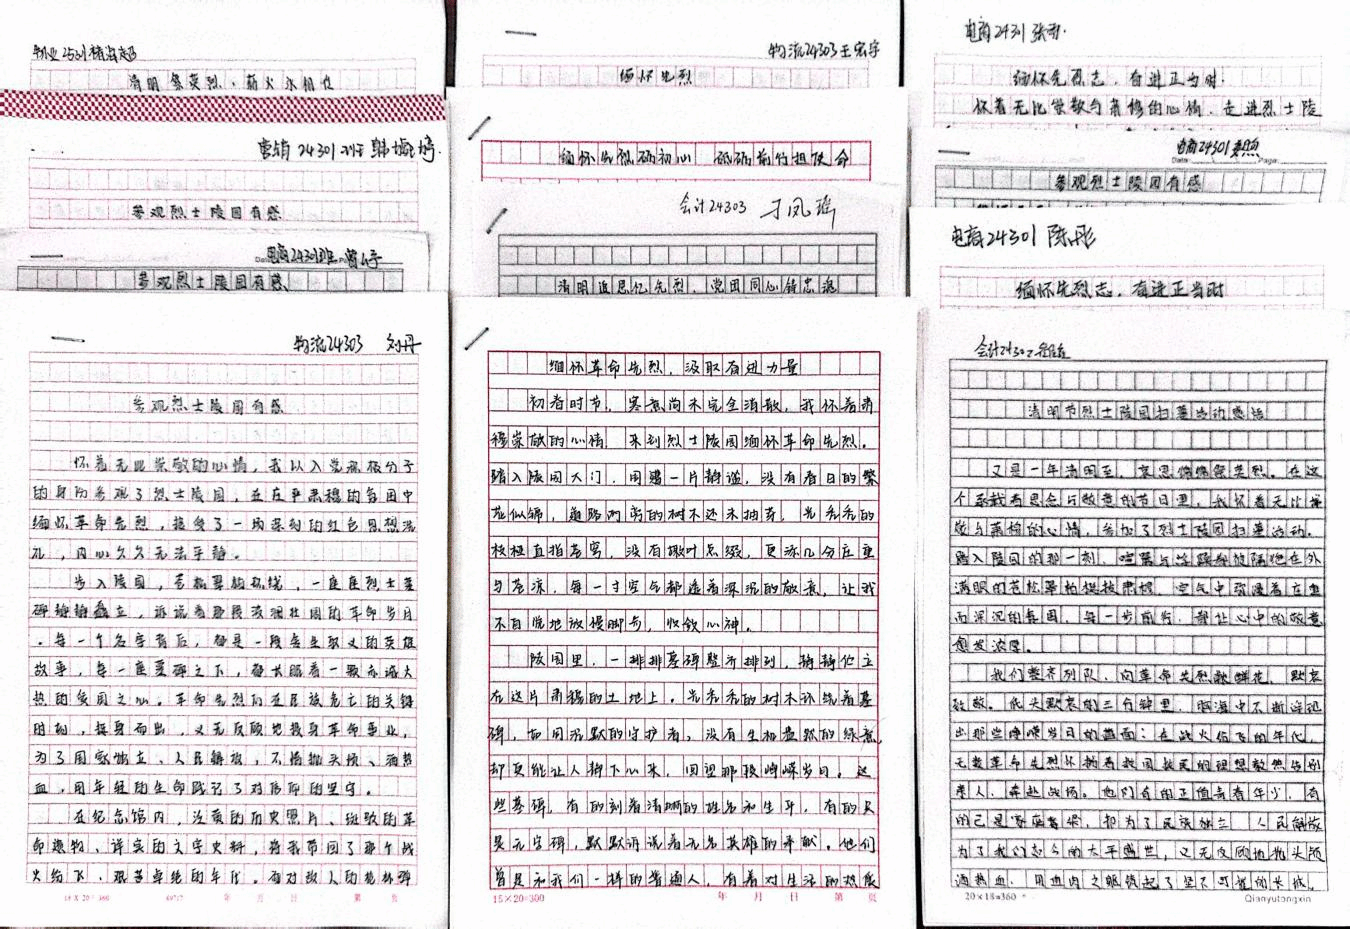 清明祭英烈，薪火永相传
营销24301班
参观烈士陵园有感
电商24301班
参观烈士陵园有感
物流24303 刘丹
参观烈士陵园有感
怀着无比崇敬的心情，我以入党积极分子
的身份参观了烈士陵园，并在庄严肃穆的氛围中
缅怀革命先烈，接受了一场深刻的红色思想洗
礼，内心久久无法平静。
步入陵园，苍松翠柏环绕，一座座烈士墓
碑静静矗立，诉说着那段波澜壮阔的革命岁月
。每一个名字背后，都是一段舍生取义的英雄
故事，每一座墓碑之下，都长眠着一颗赤诚火
热的爱国之心。革命先烈们在民族危亡的关键
时刻，挺身而出，义无反顾地投身革命事业，
为了国家独立、人民解放，不惜抛头颅、洒热
血，用年轻的生命践行了对信仰的坚守。
在纪念馆内，泛黄的历史照片、斑驳的革
命遗物、详实的文字史料，将我带回了那个战
火纷飞、艰苦卓绝的年代。面对敌人的枪林弹
15×20=300 年 月 日 第 页
物流24303王宏宇
缅怀先烈
缅怀先烈砺初心 砥砺前行担使命
会计24303 刁凤瑶
清明追思忆先烈，党团同心铸忠魂
缅怀革命先烈，汲取奋进力量
初春时节，寒意尚未完全消散，我怀着肃
穆崇敬的心情 来到烈士陵园缅怀革命先烈。
踏入陵园大门，周遭一片静谧，没有春日的繁
花似锦，道路两旁的树木还未抽芽，光秃秃的
枝桠直指苍穹，没有嫩叶点缀，更添几分庄重
与苍凉，每一寸空气都透着深沉的敬意，让我
不自觉地放慢脚步，收敛心神。
陵园里，一排排墓碑整齐排列，静静伫立
在这片肃穆的土地上。光秃秃的树木环绕着墓
碑，如同沉默的守护者，没有生机盎然的绿意，
却更能让人静下心来，回望那段峥嵘岁月。这
些墓碑，有的刻着清晰的姓名和生平，有的只
是无字碑，默默诉说着无名英雄的奉献。他们
曾是和我们一样的普通人，有着对生活的热爱
15×20=300 年 月 日 第 页
电商2431 张雨
缅怀先烈志，奋进正当时
怀着无比崇敬与肃穆的心情，走进烈士陵
电商24301
Date: Page:
参观烈士陵园有感
电商24301 陈彤
缅怀先烈志，奋进正当时
会计2430
清明节烈士陵园扫墓活动感悟
又是一年清明至，哀思绵绵祭英烈。在这
个承载着思念与敬意的节日里，我怀着无比崇
敬与肃穆的心情，参加了烈士陵园扫墓活动。
踏入陵园的那一刻，喧嚣与浮躁都被隔绝在外
满眼的苍松翠柏挺拔肃穆，空气中弥漫着庄重
而深沉的氛围，每一步前行，都让心中的敬意
愈发浓厚。
我们整齐列队，向革命先烈敬献鲜花、默哀
致敬。低头默哀的三分钟里，脑海中不断浮现
出那些峥嵘岁月的画面：在战火纷飞的年代，
无数革命先烈怀揣着救国救民的理想毅然告别
亲人，奔赴战场。他们有的正值青春年少，有
的已是家庭脊梁，却为了民族独立 人民解放
为了我们如今的太平盛世，义无反顾地抛头颅
洒热血，用血肉之躯筑起了坚不可摧的长城。
20×18=360
Qianyutongxin